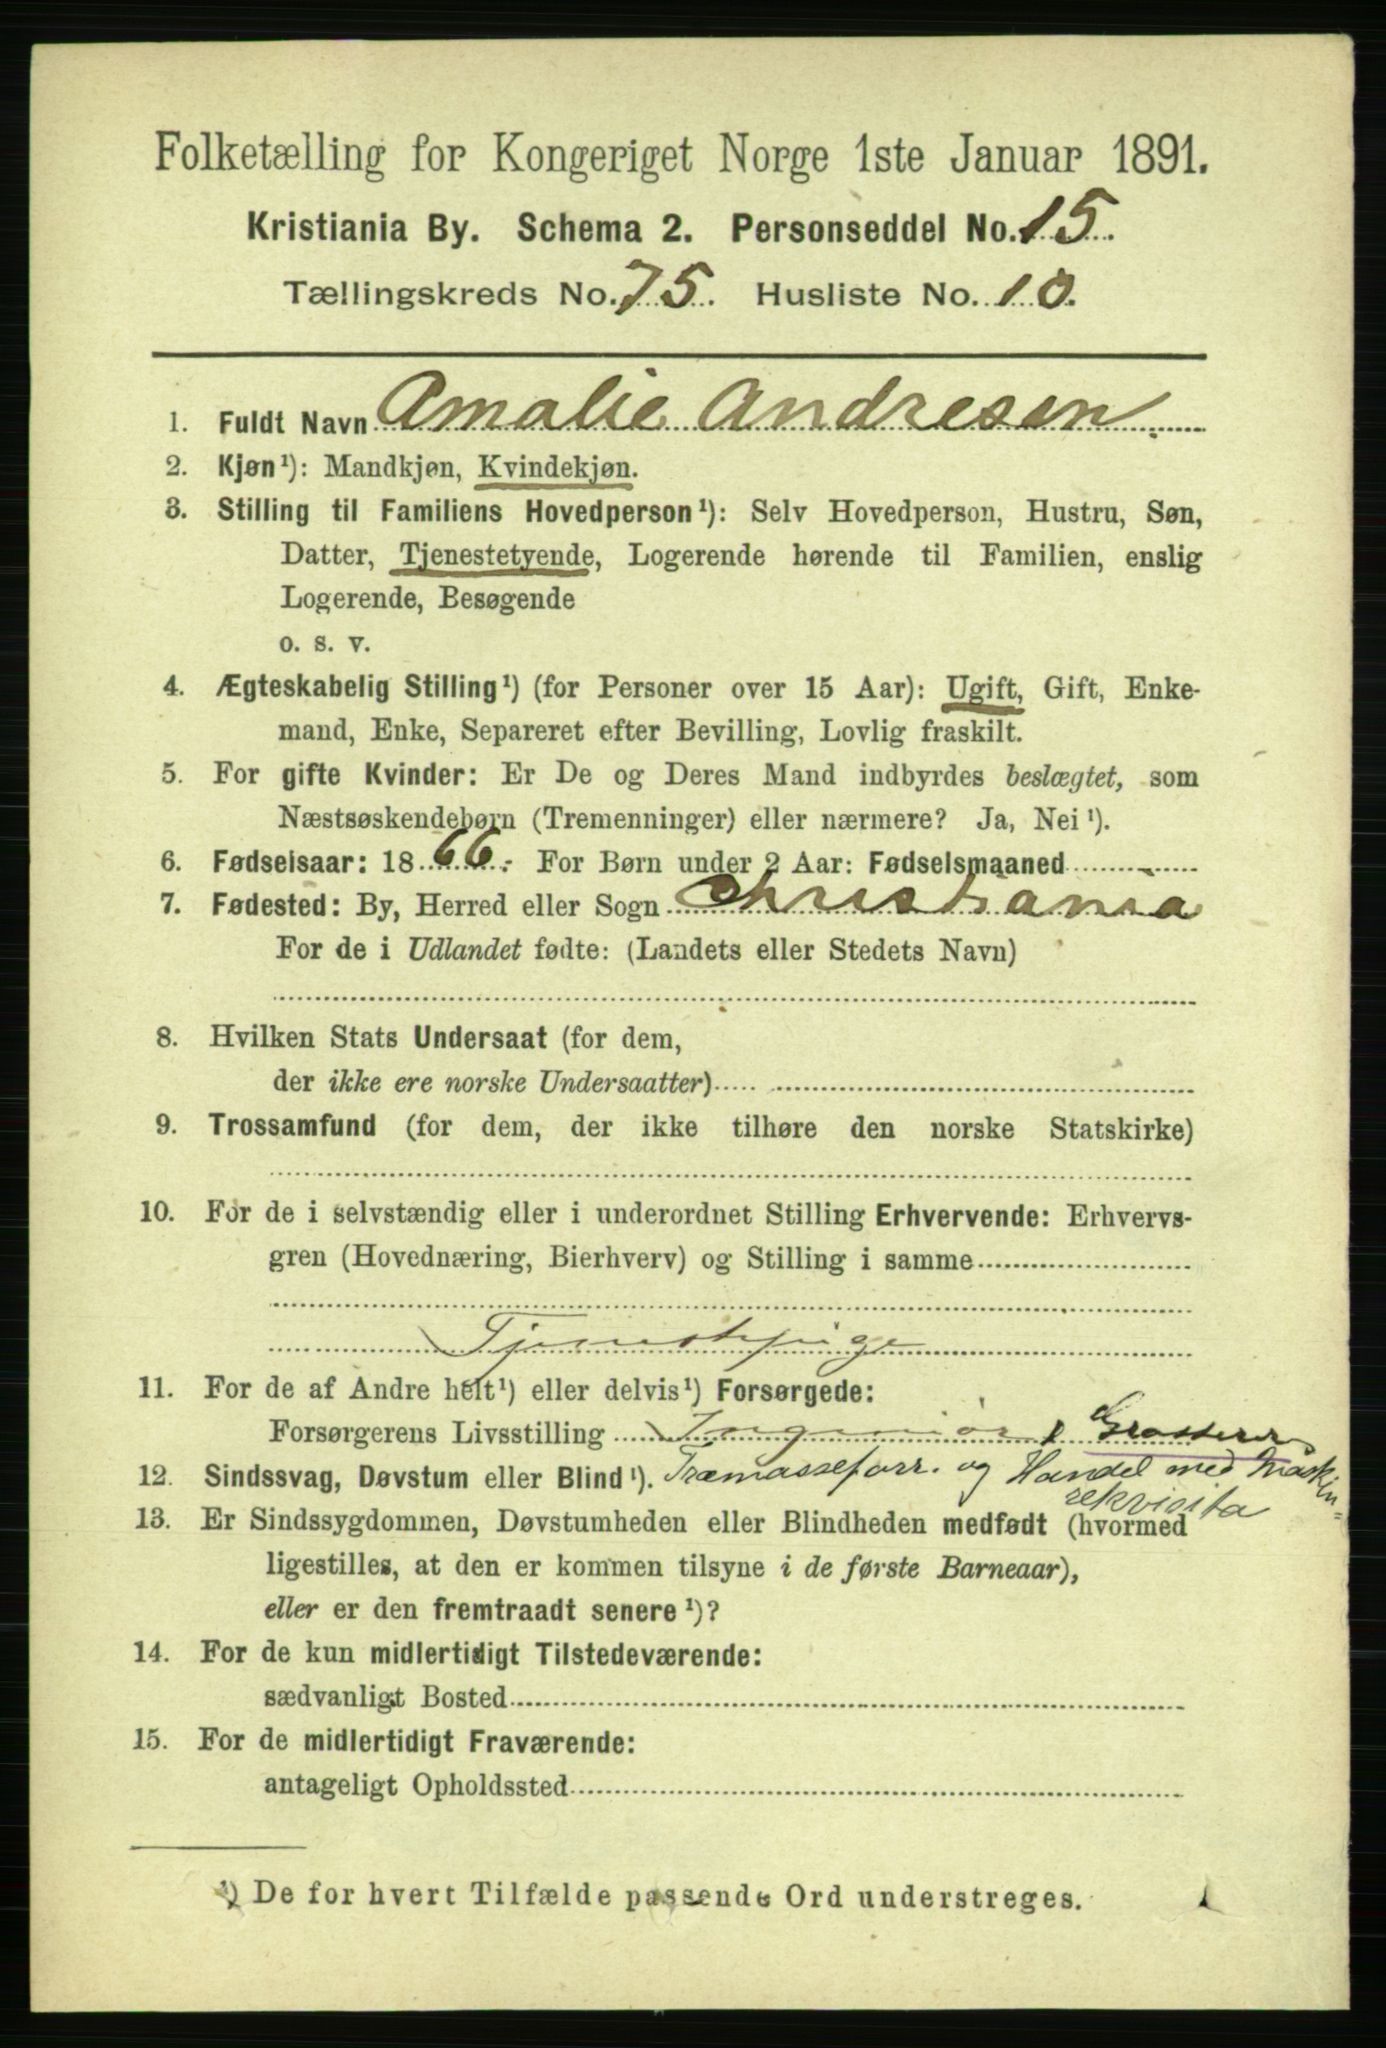 Folketælling for Kongeriget Norge 1ste Januar 1891.
Kristiania By. Schema 2. Personseddel No. 15.
Tællingskreds No. 75. Husliste No. 10.
1. Fuldt Navn Amalie Andresen
2. Kjøn¹): Mandkjøn, Kvindekjøn.
3. Stilling til Familiens Hovedperson¹): Selv Hovedperson, Hustru, Søn,
Datter, Tjenestetyende, Logerende hørende til Familien, enslig
Logerende, Besøgende
o. s. v.
4. Ægteskabelig Stilling¹) (for Personer over 15 Aar): Ugift, Gift, Enke-
mand, Enke, Separeret efter Bevilling, Lovlig fraskilt.
5. For gifte Kvinder: Er De og Deres Mand indbyrdes beslægtet, som
Næstsøskendebørn (Tremenninger) eller nærmere? Ja, Nei¹).
6. Fødselsaar: 1866. For Børn under 2 Aar: Fødselsmaaned
7. Fødested: By, Herred eller Sogn Christiania
For de i Udlandet fødte: (Landets eller Stedets Navn)
8. Hvilken Stats Undersaat (for dem,
der ikke ere norske Undersaatter)
9. Trossamfund (for dem, der ikke tilhøre den norske Statskirke)
10. For de i selvstændig eller i underordnet Stilling Erhvervende: Erhvervs-
gren (Hovednæring, Bierhverv) og Stilling i samme
Tjenestepige
11. For de af Andre helt¹) eller delvis¹) Forsørgede:
Forsørgerens Livsstilling Ingeniør, Grosserer
12. Sindssvag, Døvstum eller Blind¹). Træmasseforr. og Handel med Maskin-
rekvisita
13. Er Sindssygdommen, Døvstumheden eller Blindheden medfødt (hvormed
ligestilles, at den er kommen tilsyne i de første Barneaar),
eller er den fremtraadt senere¹)?
14. For de kun midlertidigt Tilstedeværende:
sædvanligt Bosted
15. For de midlertidigt Fraværende:
antageligt Opholdssted
¹) De for hvert Tilfælde passende Ord understreges.